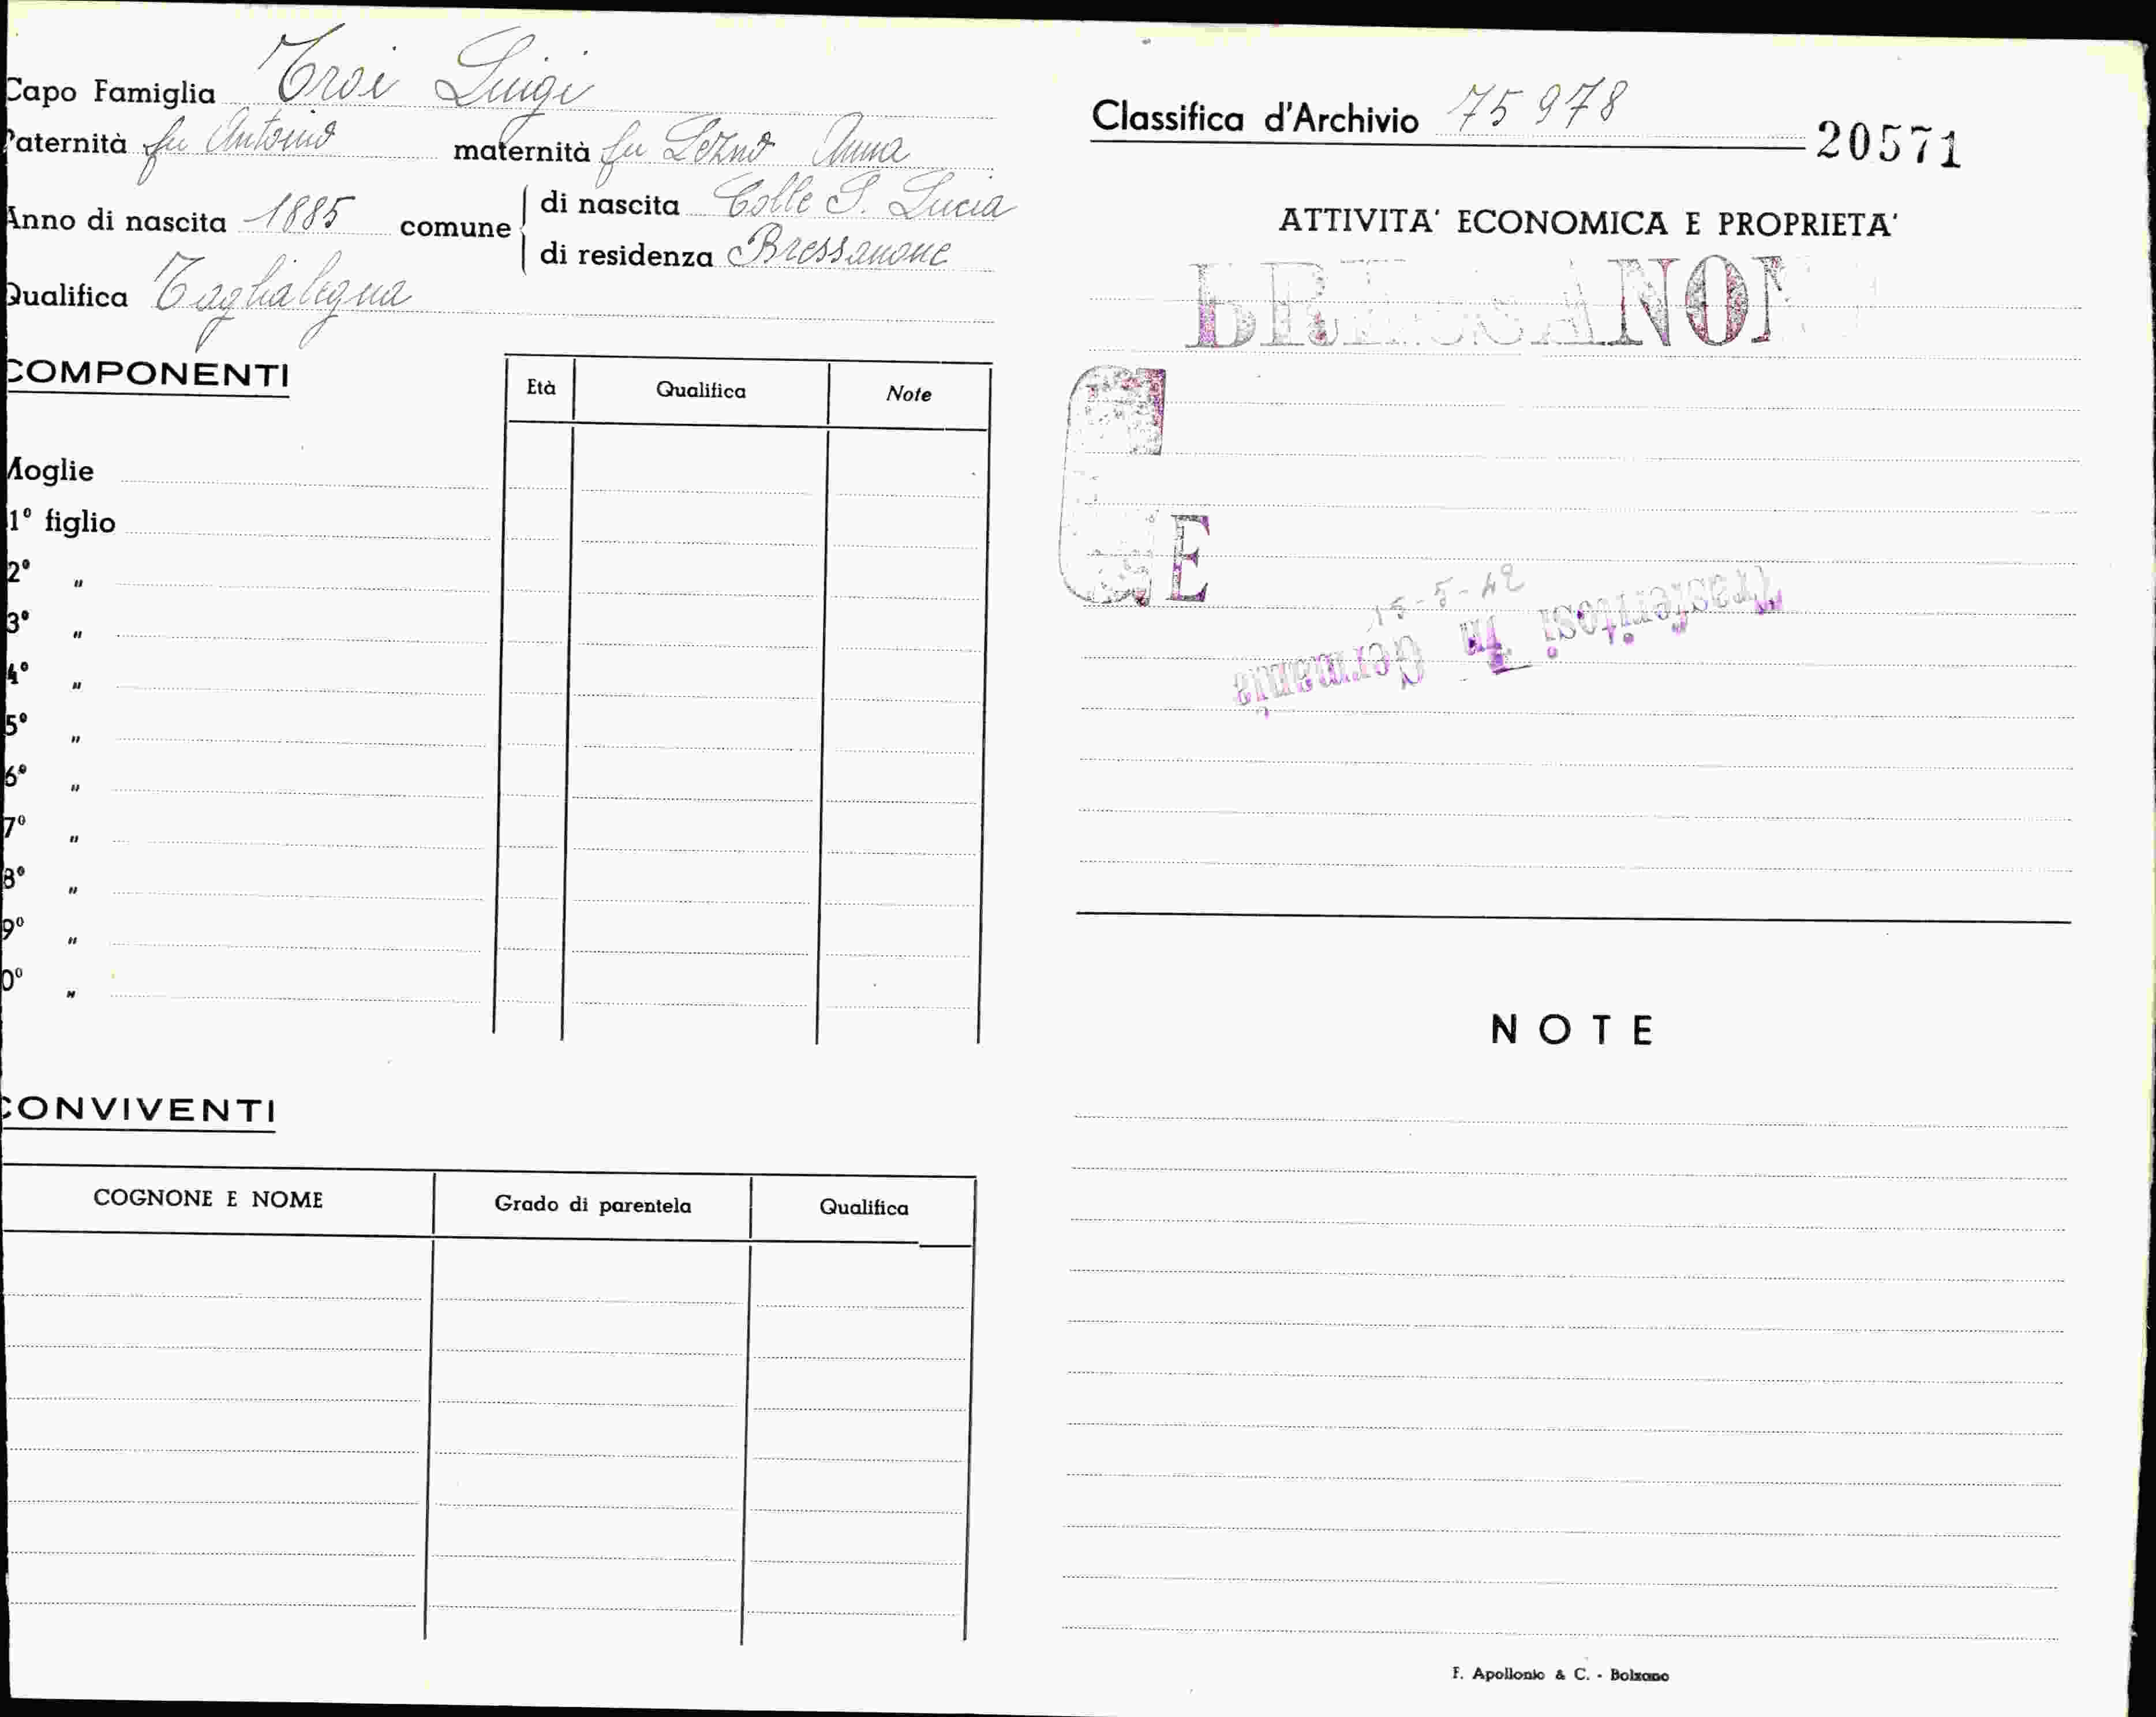 Capo Famiglia Troi Luigi
Paternità fu Antonio maternità fu Lezuo Anna
Anno di nascita 1885 comune di nascita Colle S. Lucia
di residenza Bressanone
Qualifica Taglialegna
COMPONENTI
Età Qualifica Note
Moglie
1º figlio
2º "
3º "
4º "
5º "
6º "
7º "
8º "
9º "
0º "
CONVIVENTI
COGNONE E NOME Grado di parentela Qualifica
Classifica d'Archivio 75978 20571
ATTIVITA' ECONOMICA E PROPRIETA'
BRESSANON
E
Trasferitosi in Germania
15-5-42
NOTE
F. Apollonio & C. - Bolzano